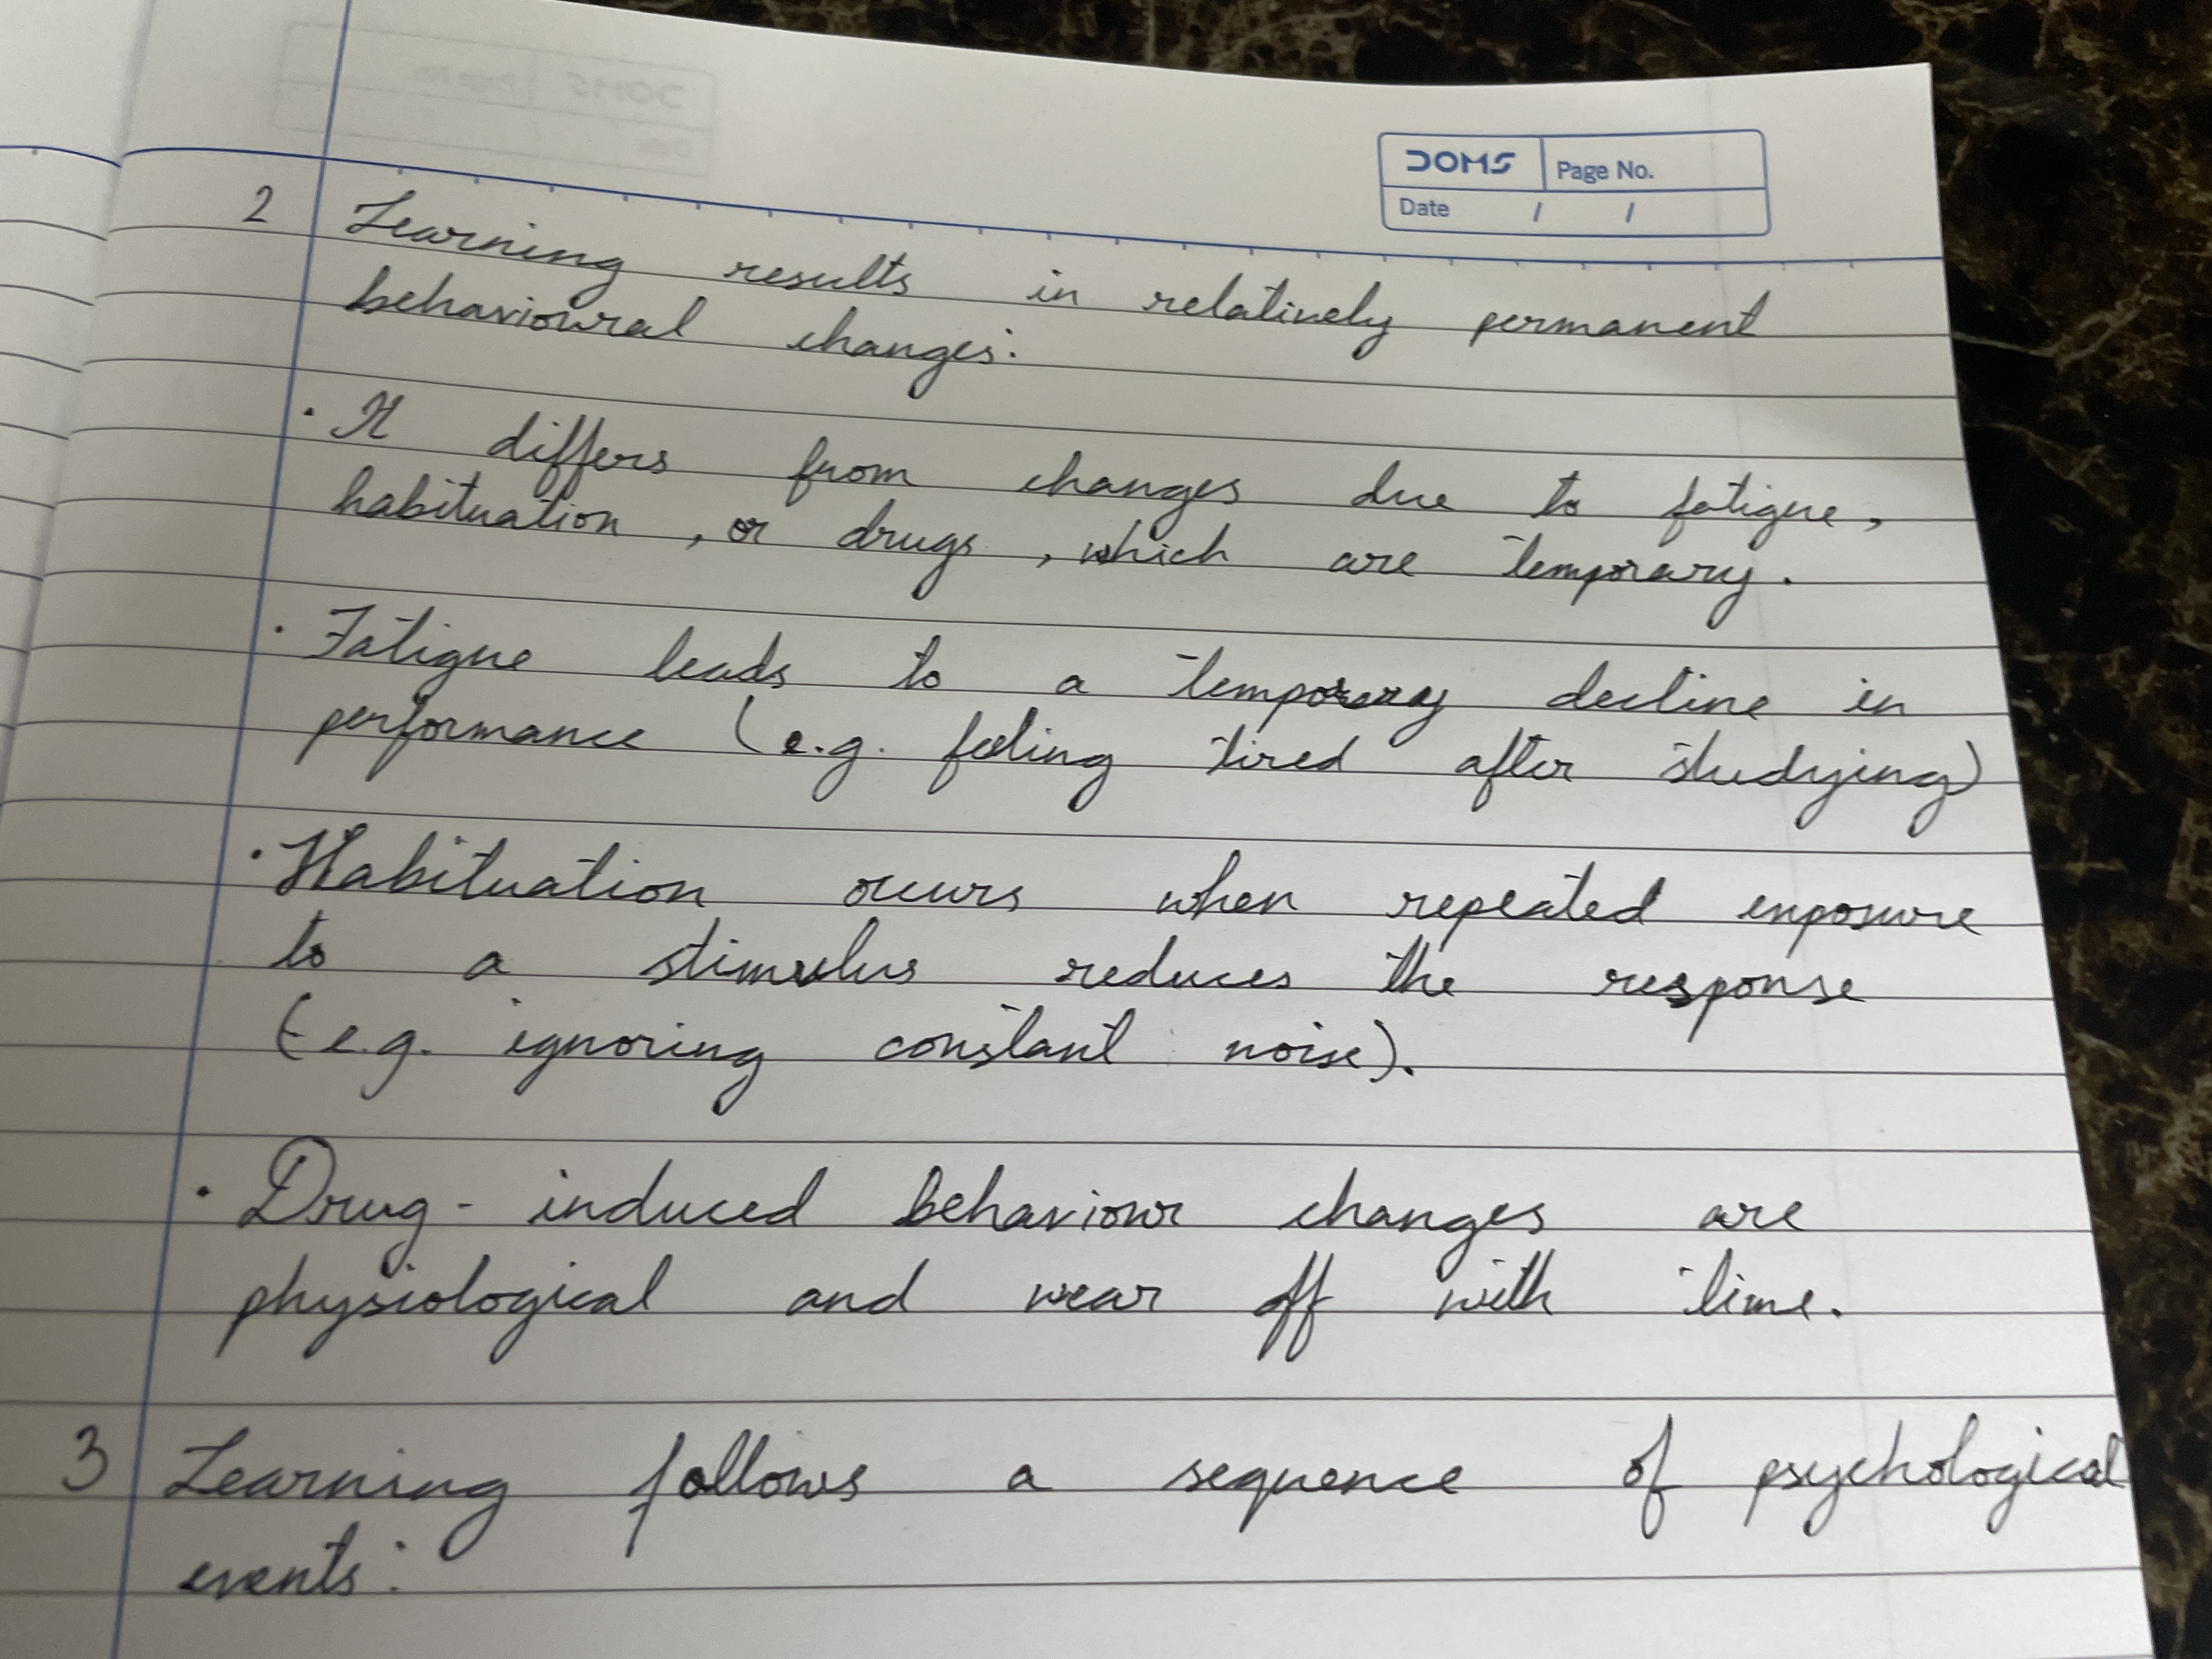 DOMS Page No.
Date / /
2 Learning results in relatively permanent
behavioural changes:
· It differs from changes due to fatigue,
habituation, or drugs, which are temporary.
· Fatigue leads to a temporary decline in
performance (e.g. feeling tired after studying)
· Habituation occurs when repeated exposure
to a stimulus reduces the response
(e.g. ignoring constant noise).
· Drug-induced behaviour changes are
physiological and wear off with time.
3 Learning follows a sequence of psychological
events: